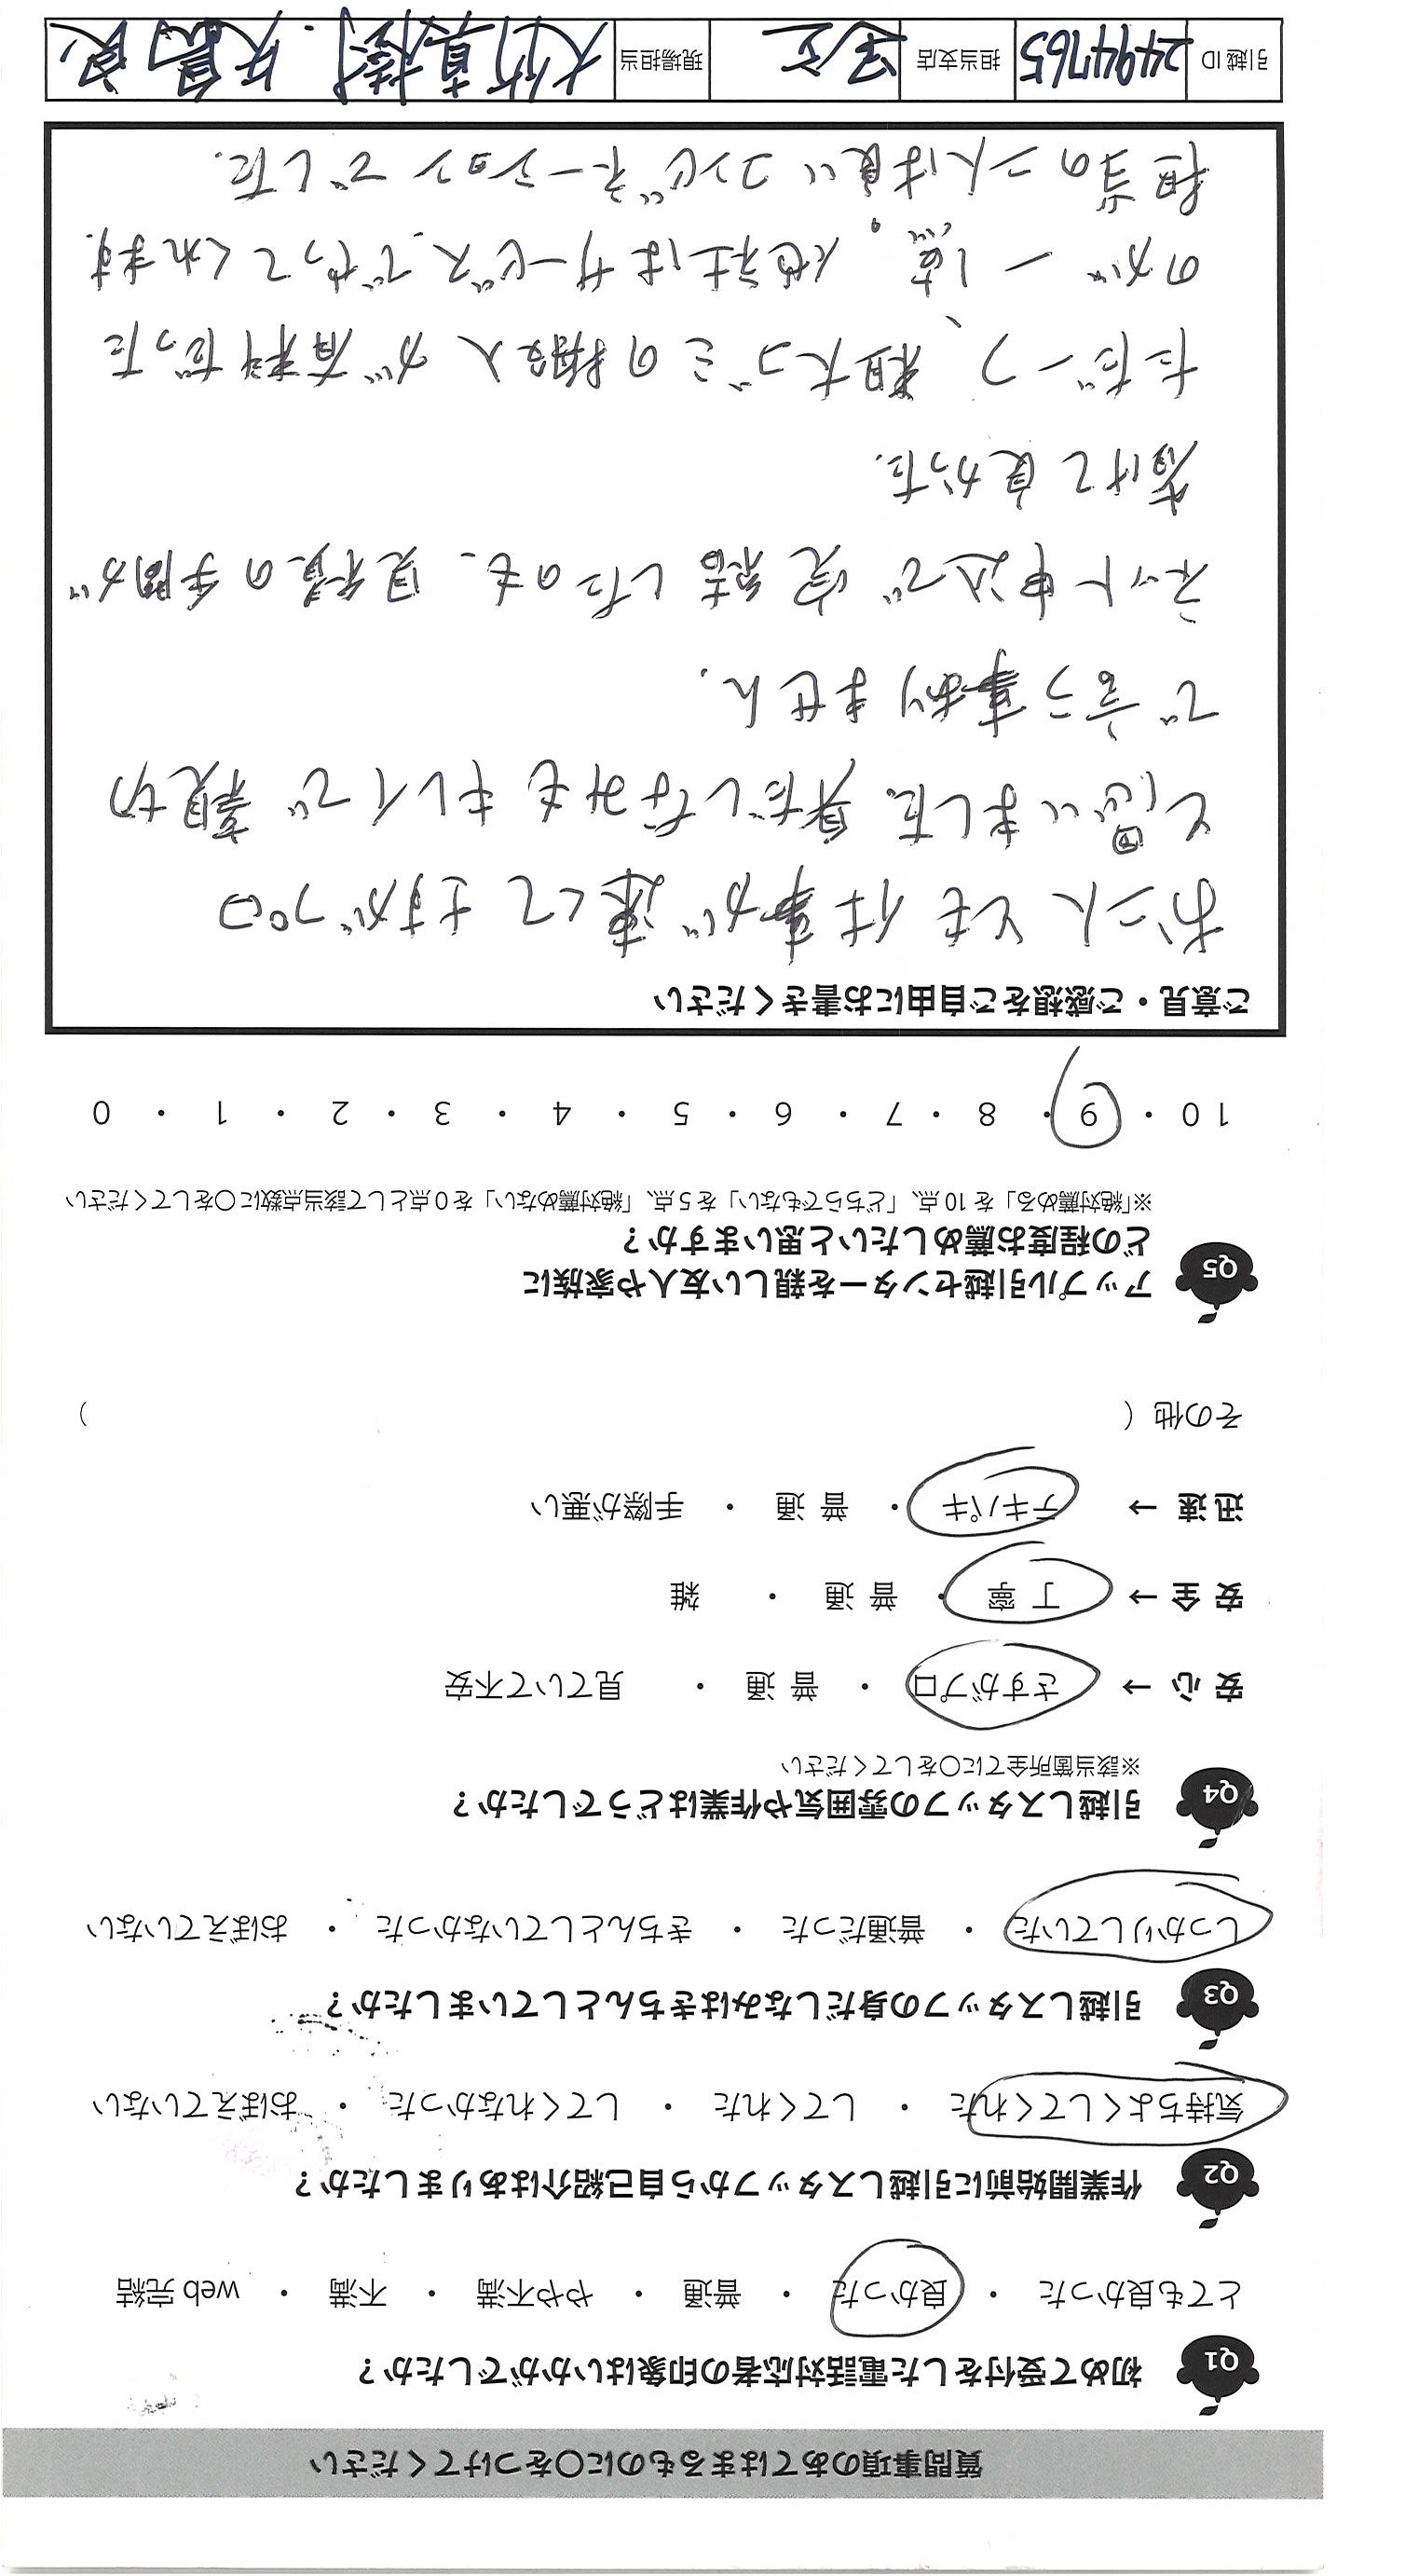 質問事項のあてはまるものに○をつけてください
Q1 初めて受付をした電話対応者の印象はいかがでしたか?
とても良かった ・ 良かった ・ 普通 ・ やや不満 ・ 不満 ・ web 完結
Q2 作業開始前に引越しスタッフから自己紹介はありましたか?
気持ちよくしてくれた ・ してくれた ・ してくれなかった ・ おぼえていない
Q3 引越しスタッフの身だしなみはきちんとしていましたか?
しっかりしていた ・ 普通だった ・ きちんとしていなかった ・ おぼえていない
Q4 引越しスタッフの雰囲気や作業はどうでしたか?
※該当箇所全てに○をしてください
安 心 → さすがプロ ・ 普 通 ・ 見ていて不安
安 全 → 丁 寧 ・ 普 通 ・ 雑
迅 速 → テキパキ ・ 普 通 ・ 手際が悪い
その他 ( )
Q5 アップル引越センターを親しい友人や家族に
どの程度お薦めしたいと思いますか?
※「絶対薦める」を 10 点、「どちらでもない」を 5 点、「絶対薦めない」を 0 点として該当点数に○をしてください
10 ・ 9 ・ 8 ・ 7 ・ 6 ・ 5 ・ 4 ・ 3 ・ 2 ・ 1 ・ 0
ご意見・ご感想をご自由にお書きください
お二人とも仕事が速くてさすがプロ
と思いました。身だしなみもキレイで親切
で言う事ありません.
ネット申込で完結したのも、見積の手間が
省けて良かった.
ただ一つ、粗大ゴミの搬入が有料だった
のが一点。他社はサービスでやってくれます.
担当の二人は良いコンビネーションでした.
引越 ID 2494765 担当支店 現場担当 大竹真樹. 矢島良